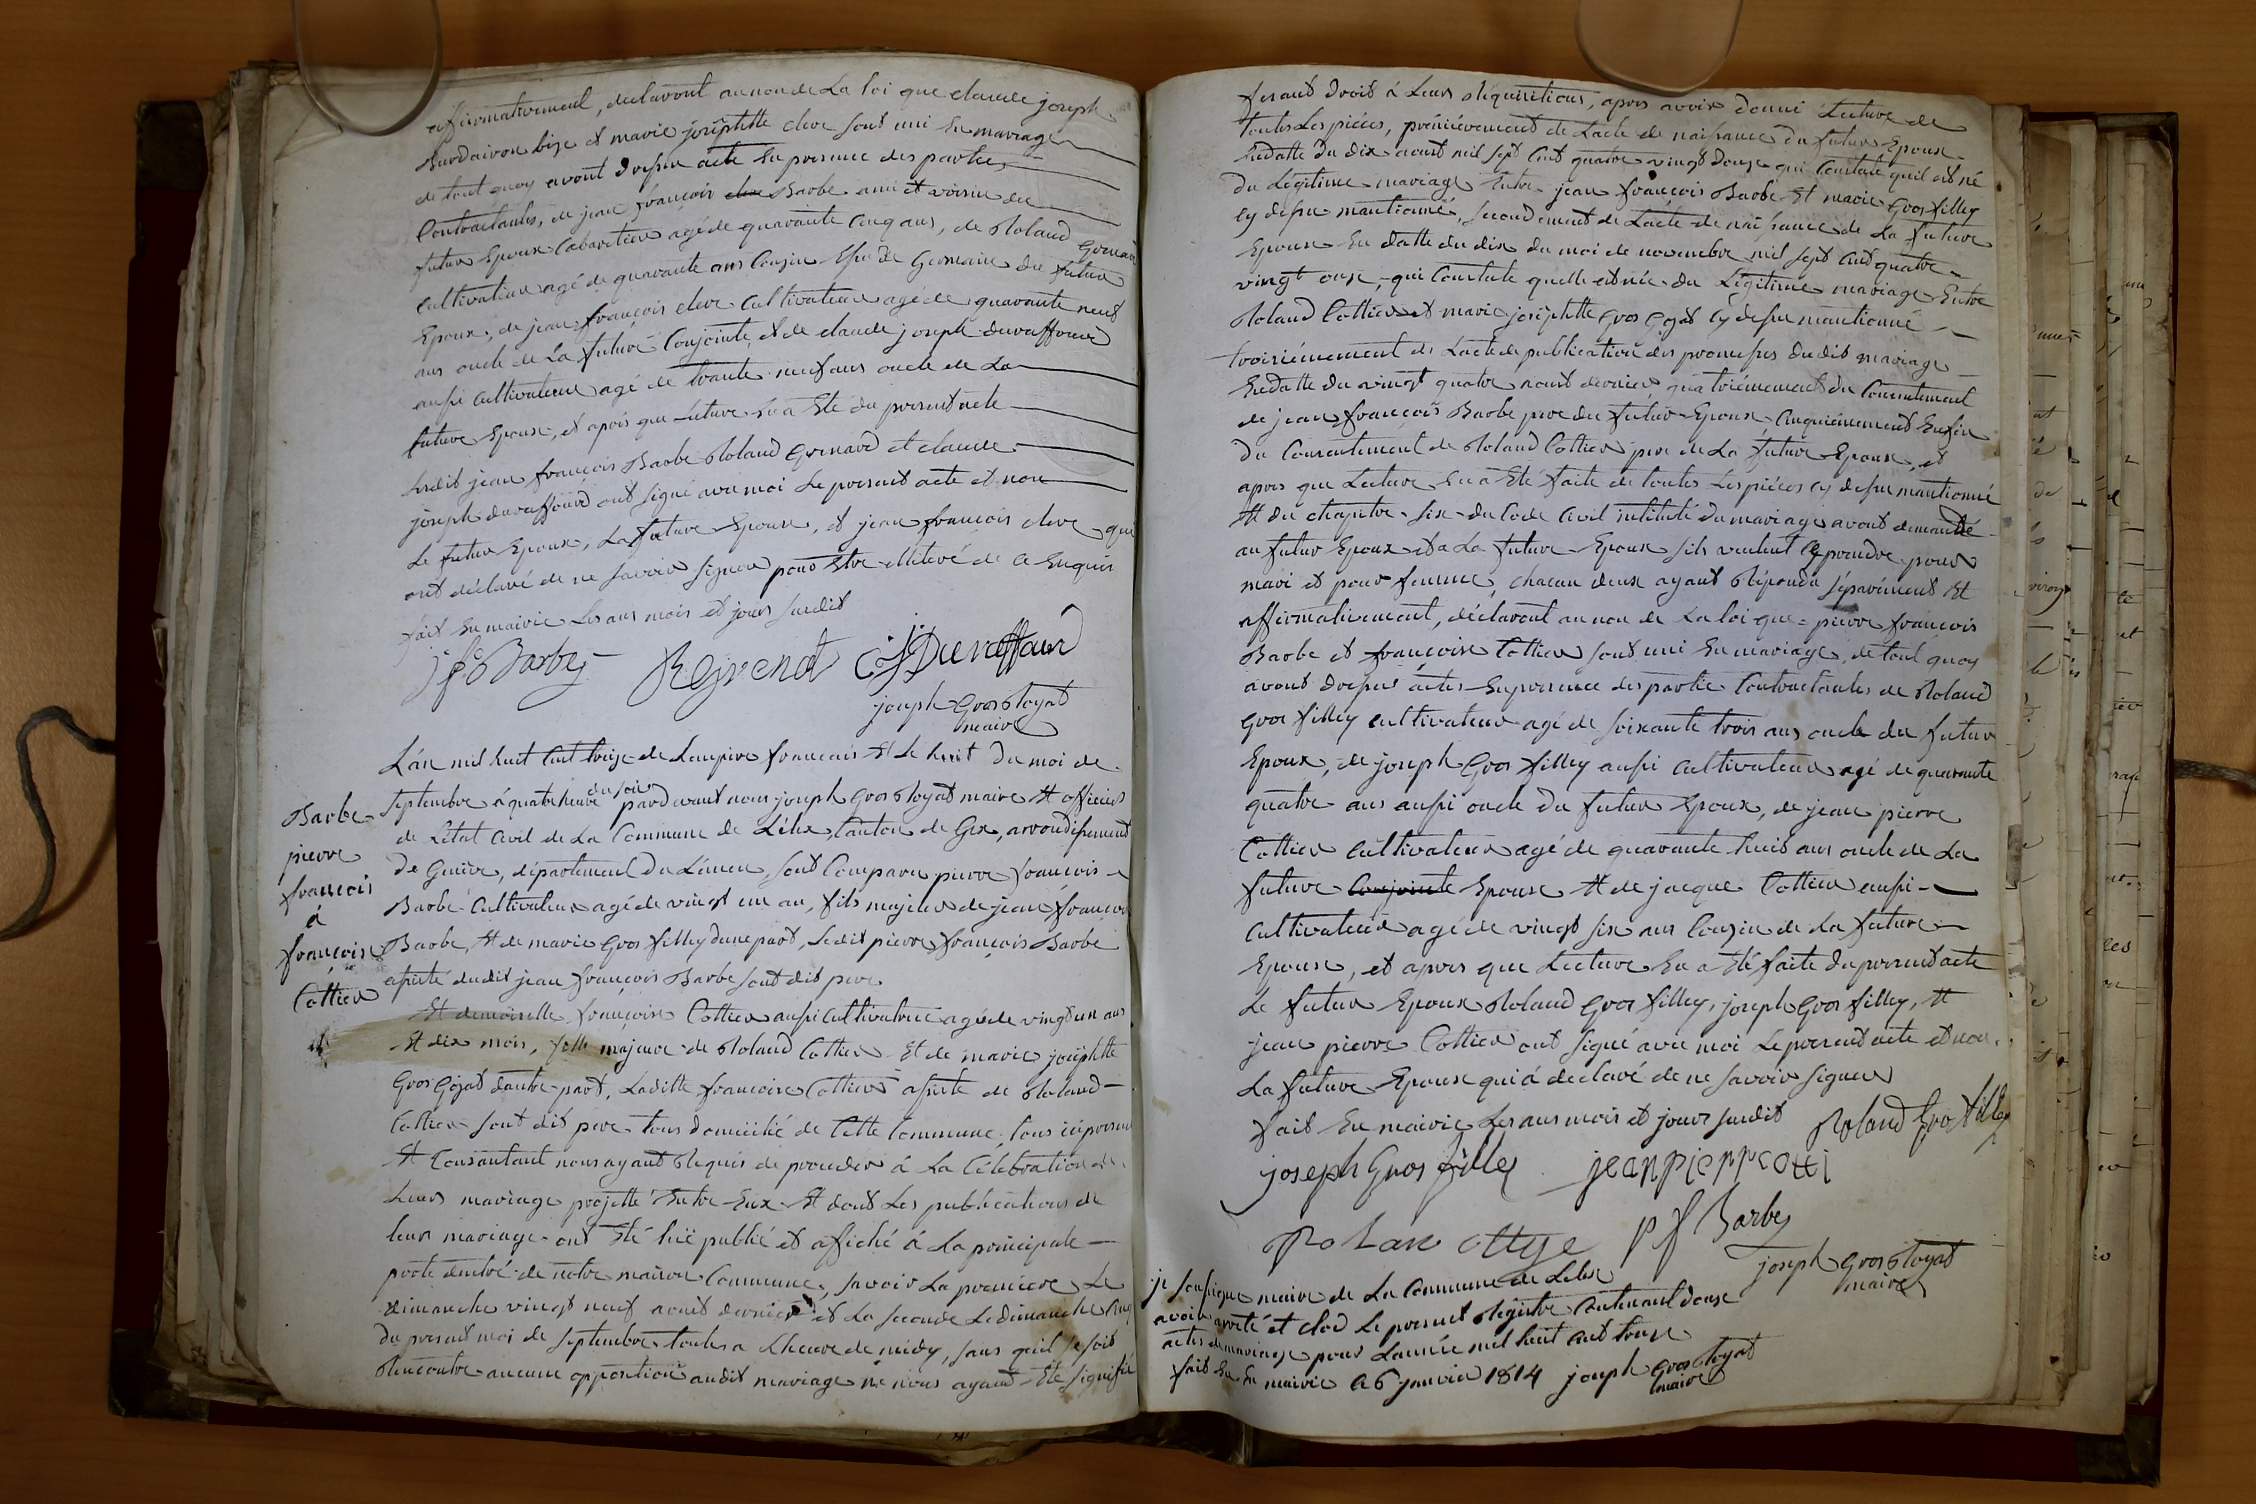 affirmativement, declavont au non de La loi que claude joseph
Burdairon bize et marie josephtte clerc sont uni En mariage
de tout quoy avont dressé acte En presence des parties
Contractantes, de jean françois Barbe ami et voisin du
futur Epoux Cabartier agé de quarante Cinq ans, de Roland Grenard
Cultivateur agé de quarante ans Cousin Issu de Germain du futur
Epoux, de jean françois clerc Cultivateur agé de quarante neuf
ans oncle de La future Conjointe, et de claude joseph duraffourd
aussi Cultivateur agé de trante neuf ans oncle de La
future Epouse, et aprés que Lecture En a Eté du present acte
Lesdit jean françois Barbe Roland Grenard et claude
joseph duraffourd ont signé avec moi Le present acte et non
Le futur Epoux, La future Epouse, et jean françois clerc qui
ont déclaré de ne savoir signer pour Etre illiteré de Ce Enquis
fait En mairie Les ans mois et jour susdit
jfs Barbe RGrenard CJDuraffour
joseph Gros Royat
maire
Barbe
pierre
françois
à
françoise
Cottier
L'an mil huit Cent treize de L'empire français Et Le huit du moi de
septembre à quatre heure du soir pardevant nous joseph Gros Royat maire Et officier
de L'état Civil de La Commune de Lélex, Canton de Gex, arrondissement
de Genève, département du Léman, sont Comparu pierre françois
Barbe Cultivateur agé de vingt un an, fils majeur de jean françois
Barbe, Et de marie Gros filley dune part, Ledit pierre françois Barbe
assisté dudit jean françois Barbe sont dit pere
Et demoiselle françoise Cottier aussi Cultivatrice agée de vingt un ans
Et dix mois, fille majeure de Roland Cottier Et de marie josephtte
Gros Gojat dautre part, Laditte françoise Cottier assisté de Roland
Cottier sont dit pere tous domicilié de Cette Commune, tous ici present
Et Consantant nous ayant Requis de proceder à La Célébration de
Leurs mariage projetté Entre Eux Et dont Les publications de
leur mariage ont Eté luë publié et affiché à La principale
porte dentré de notre maison Commune, savoir La premiere Le
dimanche vingt neuf aout dernier et La seconde Le dimanche Cinq
du present moi de septembre toutes a Lheure de midy, sans quil se soit
Rencontre aucune opposition audit mariage ne nous ayant Eté signifié
fesant droit à Leurs Requisitions, aprés avoir donné Lecture de
toutes Les piéces, premièrement de Lacte de naissance du futur Epoux
Endatte du dix aoust mil sept Cent quatre vingt douze qui Constate quil est né
du Légitime mariage Entre jean françois Barbe Et marie Gros filley
cy dessu mantionné, secondement de Lacte de naissance de La future
Epouse En datte du dix du moi de novembre mil sept Cent quatre
vingt onze, qui Constate quelle est née du Légitime mariage Entre
Roland Cottier et marie josephtte Gros Gojat cy dessu mantionné
troisiémement de Lacte de publication des promesses dudit mariage
Endatte du vingt quatre aoust dernier quatriémement du Consentement
de jean françois Barbe pere du futur Epoux Cinquiémement Enfin
du Consentement de Roland Cottier pere de La future Epouse, et
aprés que Lecture En a Eté faite de toutes Les piéces cy dessu mantionné
Et du chapitre six du Code Civil intitulé du mariage avont demandé
au futur Epoux et a La future Epouse sils veulent se prendre pour
mari et pour femme, chacun deux ayant Répondu séparément Et
affirmativement, déclavont au non de La loi que pierre françois
Barbe et françoise Cottier sont uni En mariage, de tout quoy
avont dressé actes En presence des partie Contractantes de Roland
Gros filley Cultivateur agé de soixante trois ans oncle du futur
Epoux, de joseph Gros filley aussi Cultivateur agé de quarante
quatre ans aussi oncle du futur Epoux, de jean pierre
Cottier Cultivateur agé de quarante huit ans oncle de La
future Conjointe Epouse Et de jacque Cottier aussi
Cultivateur agé de vingt six ans Cousin de La future
Epouse, et aprés que Lecture En a Eté faite du present acte
Le futur Epoux Roland Gros filley, joseph Gros filley, Et
jean pierre Cottier ont signé avec moi Le present acte et non
La future Epouse qui a declaré de ne savoir signer
fait En mairie Les ans mois et jour susdit Roland Gros filley
joseph Gros filley jeanpierrecotti
Rolan ottye pf Barbe
joseph Gros Royat
maire
je soussigné maire de La Commune de Lelex
avoir arrété et clos Le present Régistre Contenant douze
actes de mariage pour Lannée mil huit Cent treize
fait En mairie Ce 6 janvier 1814 joseph Gros Royat
maire